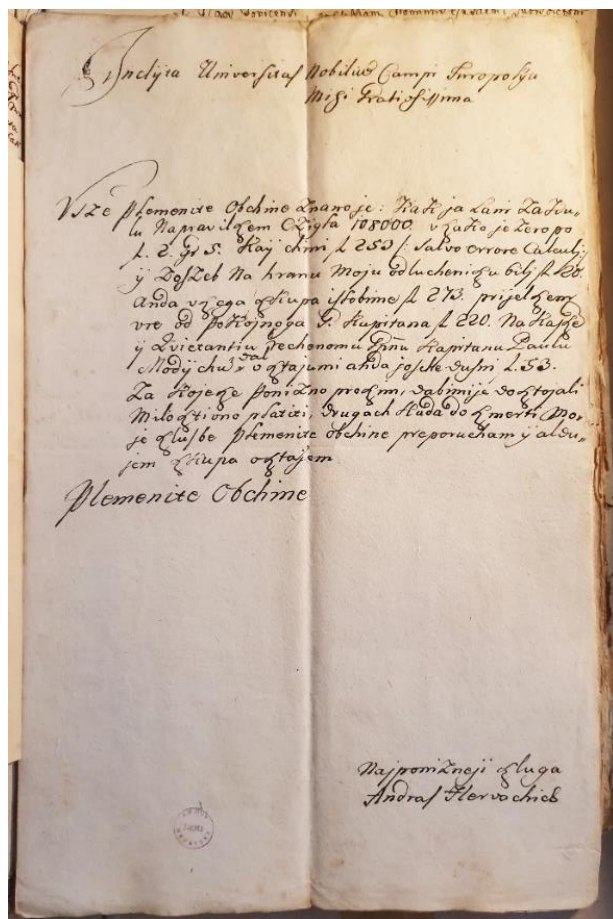 Inclyta Universitas Nobilium Campi Turopolya
Mihi Gratiosissima
Vsze Plemenite Obchine znano je: Kak ja Lani
u Napravil szem Czigla 108000. vszako je Zero po
f. 2. Gr 5. Kaÿ chini f 253 /: Salvo errore Calculi:/
ÿ Doszeb Na hranu Moju odluchenih bilÿ f 20.
Anda vszega szkupa iszobine f 273. prijel szem
vre od Pokojnoga G. Kapitana f 220. Na kaj sze
ÿ Kapitanu Paulu
Modÿchu dal osztajumi anda joschte dusni f. 53.
Za koje sze Ponizno proszim, da bi mi je dosztojali
Milosztivno platiti, drugach sluda do szmerti Mo
je Sluse Plemenite obchine preporucham ÿ aldu
jem szkupa osztajem
Plemenite Obchine
Najponizneji szluga
Andras Hervachich